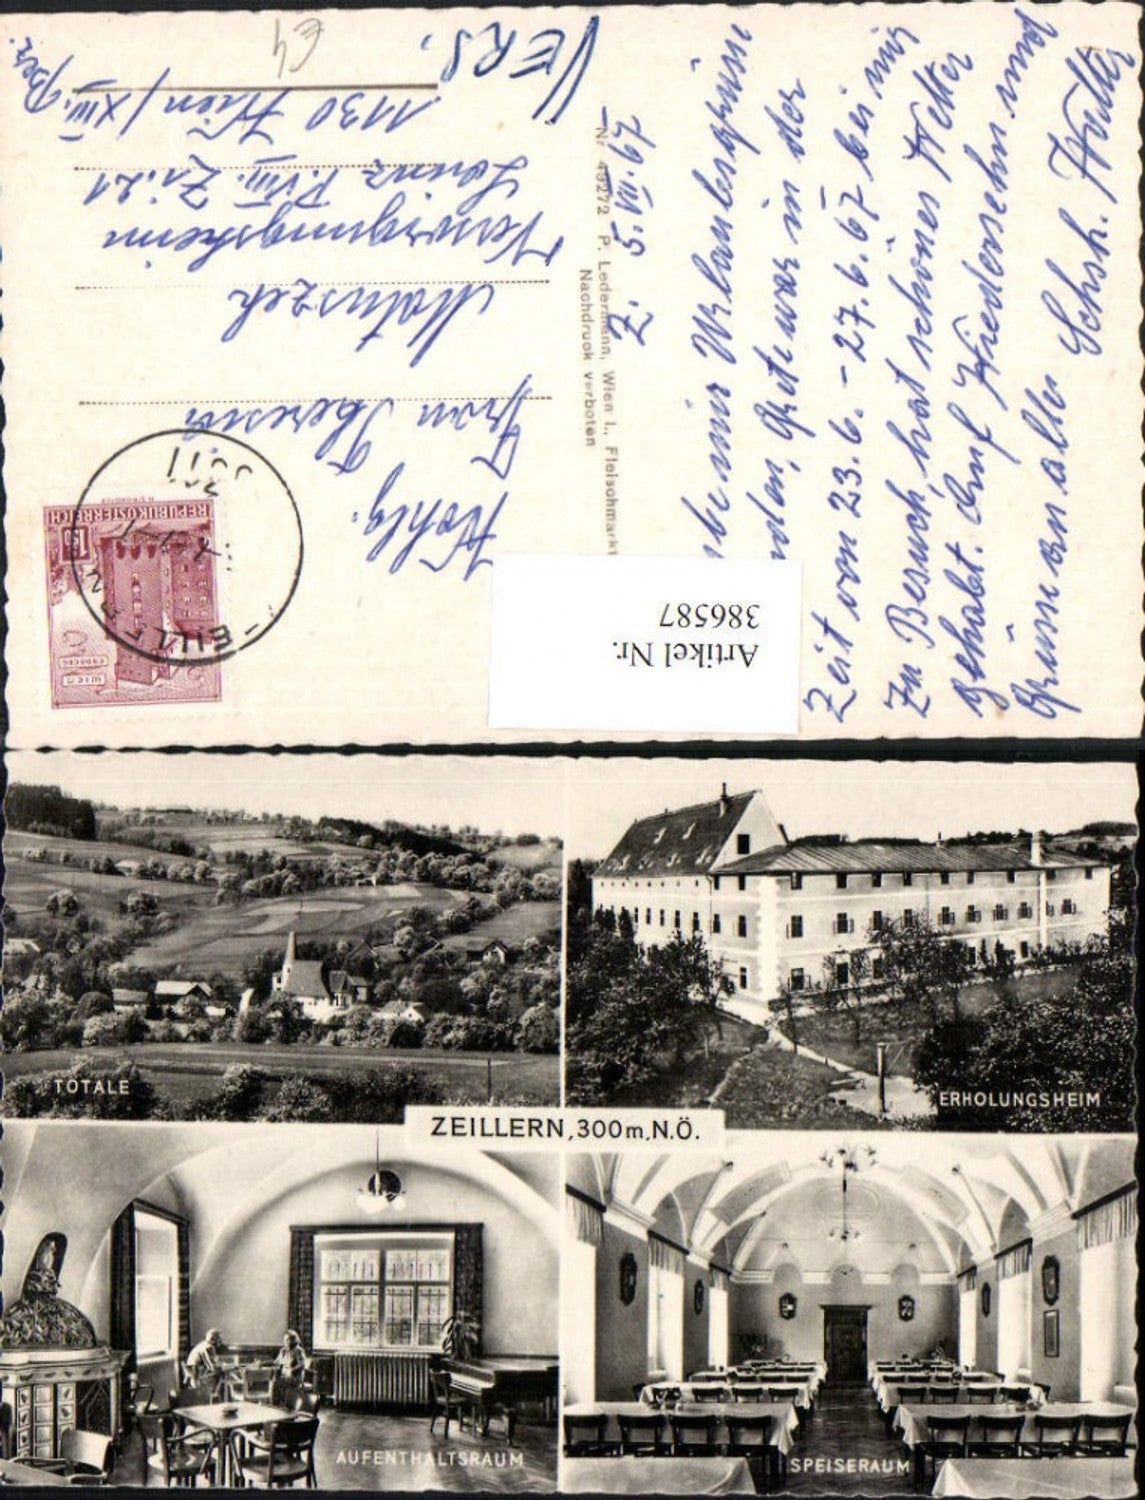 VERS.
Z. 5. VII. 67
meine Urlaubsgrüsse
Grete war in der
Zeit von 23.6. - 27.6.67 bei mir
zu Besuch, hat schönes Wetter
gehabt. Auf Wiedersehn und
Grüsse an alle Walter
Nr 49272 P. Ledermann, Wien I., Fleischmarkt
Nachdruck verboten
Wohlg.
Frau Theresia
Matuszek
Versorgungsheim
Lorenz P. VIII. Zi. 21
1130 Wien/XIII. Bez.
REPUBLIK ÖSTERREICH
WIEN
ERDBERG
Artikel Nr.
386587
TOTALE
ERHOLUNGSHEIM
ZEILLERN, 300m, N.Ö.
AUFENTHALTSRAUM
SPEISERAUM